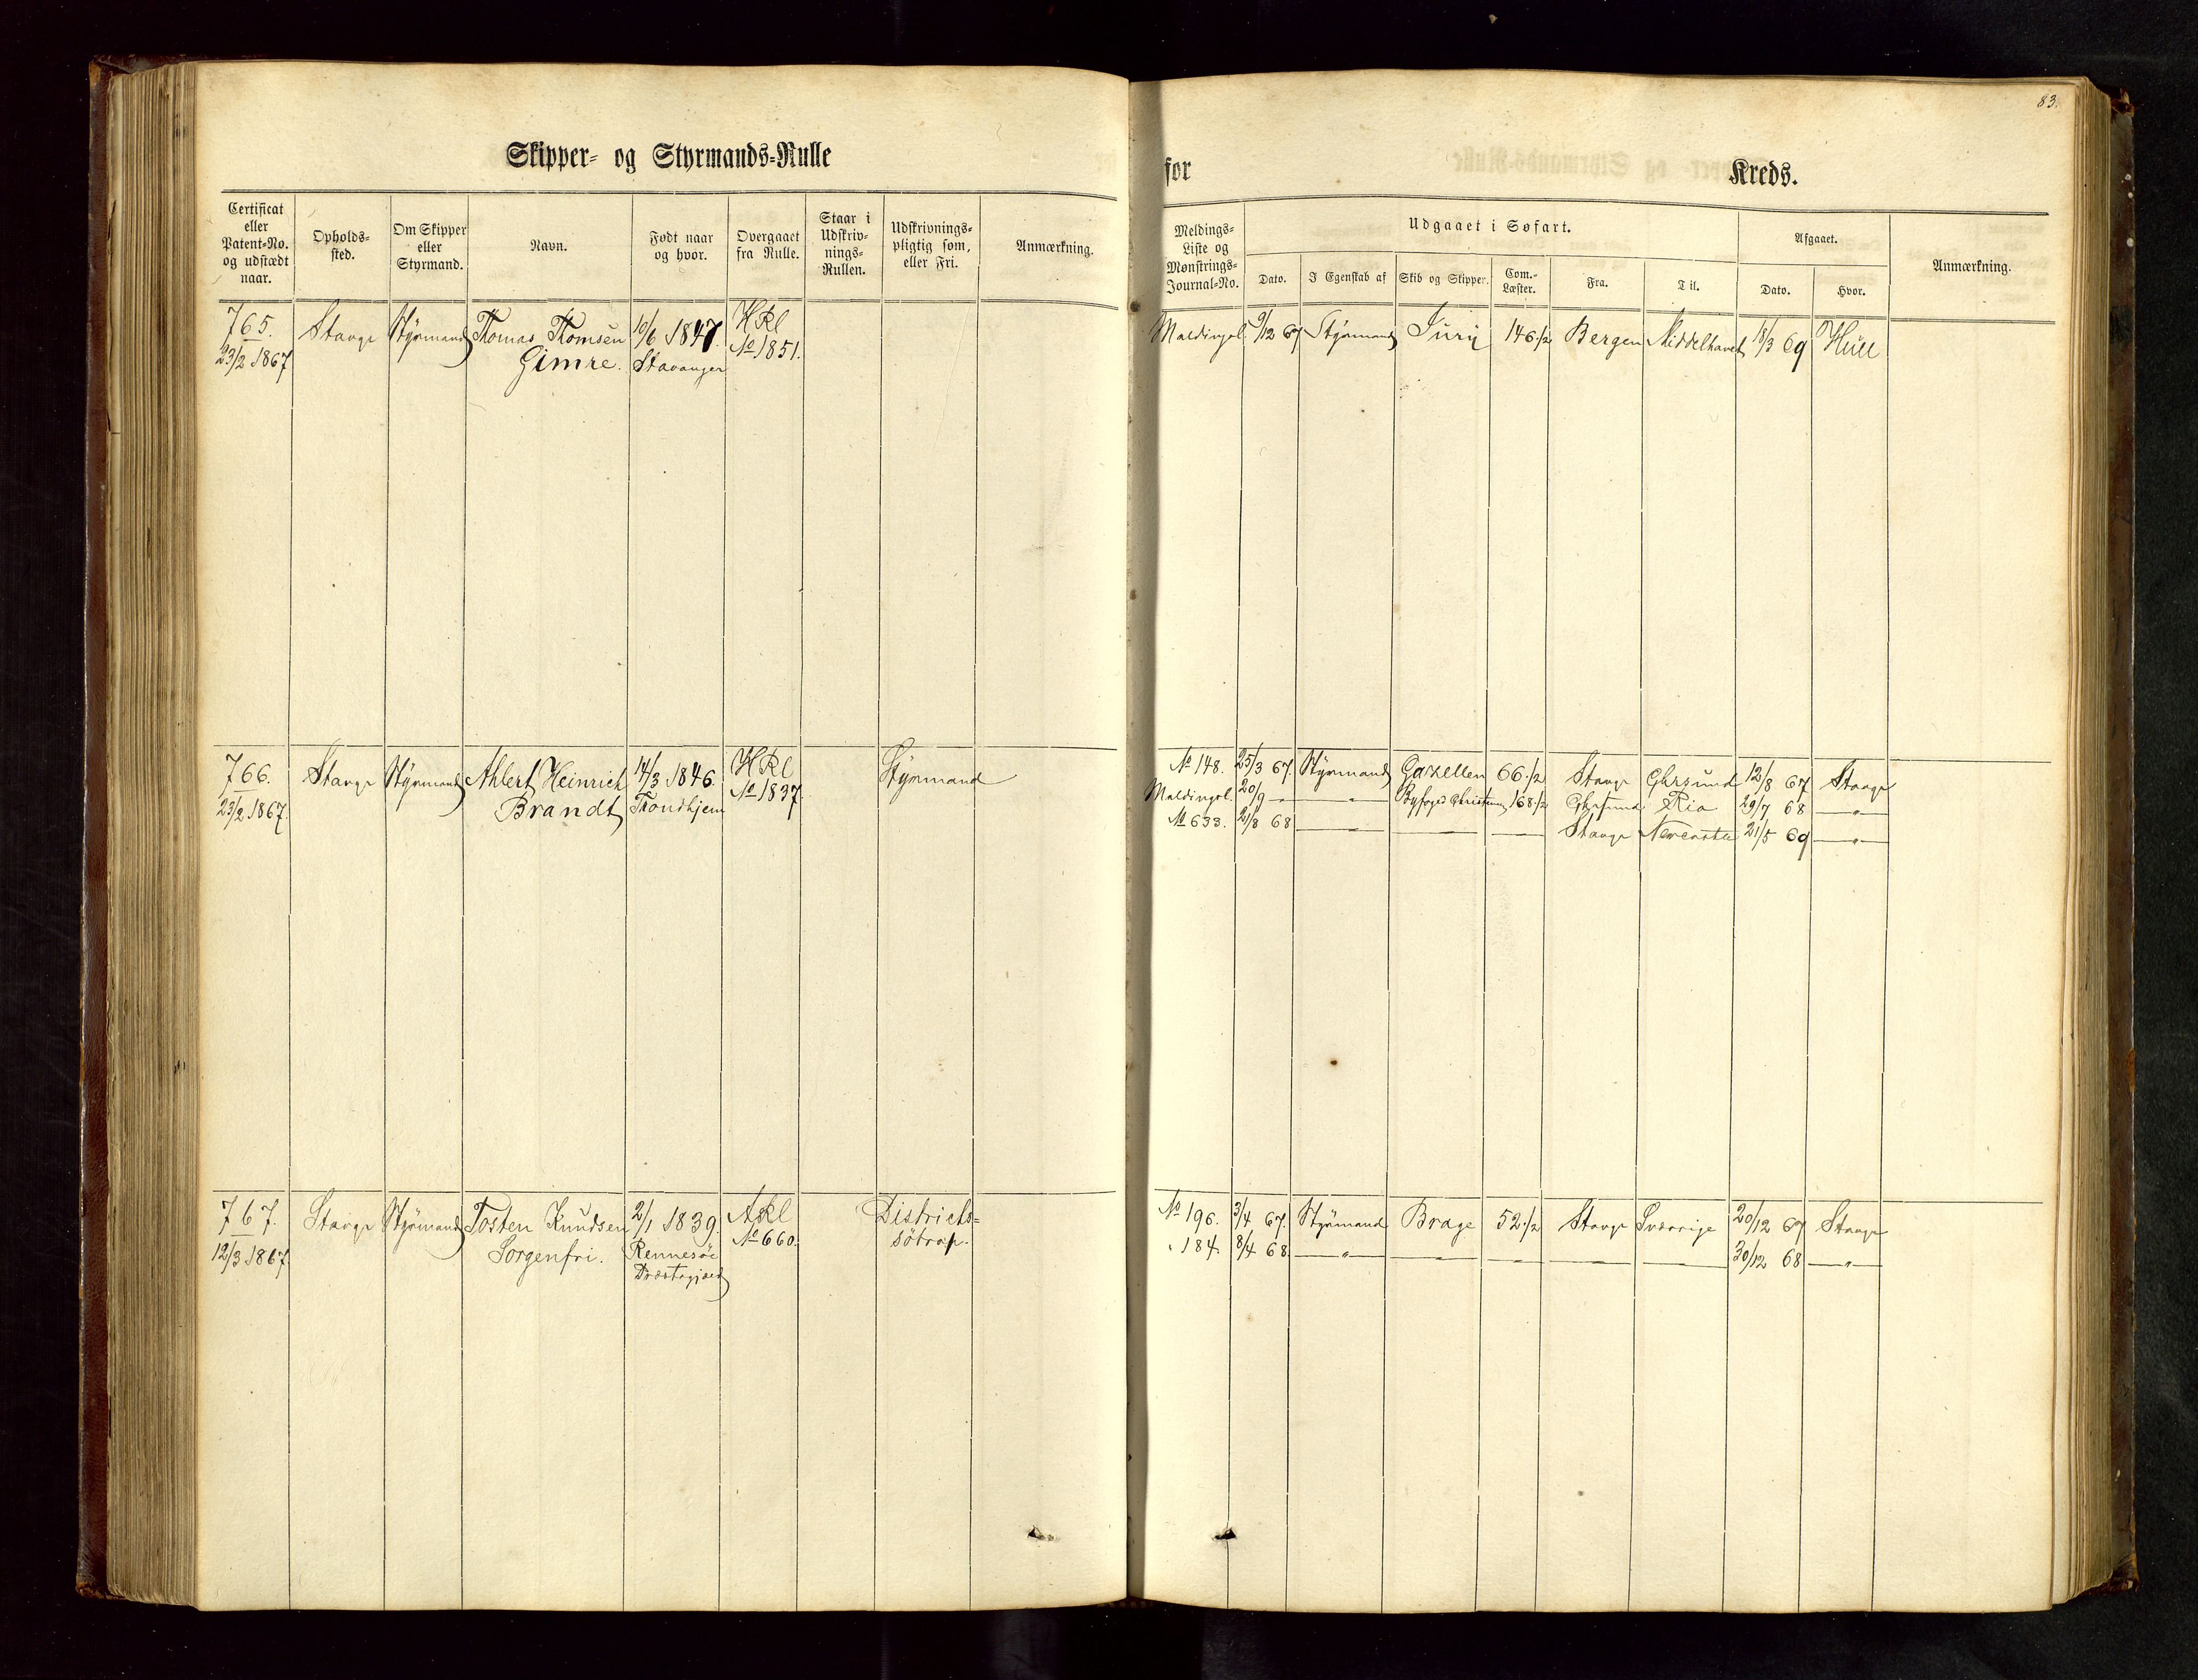 83.
Skipper- og Styrmands-Rulle
for Kreds.
Certificat eller Patent-No. og udstædt naar.
Opholds-sted.
Om Skipper eller Styrmand.
Navn.
Født naar og hvor.
Overgaaet fra Rulle.
Staar i Udskriv-nings-Rullen.
Udskrivnings-pligtig som, eller Fri.
Anmærkning.
Meldings-Liste og Mønstrings-Journal-No.
Udgaaet i Søfart.
Dato.
I Egenskab af
Skib og Skipper.
Com.-Læster.
Fra.
Til.
Afgaaet.
Dato.
Hvor.
Anmærkning.
765. Stavgr Styrmand Thomas Thomsen 10/6 1847. HRl
23/2 1867 Gimre. Stavanger No 1851.
Meldingsl. 9/12 67 Styrmand Juri 146 1/2 Bergen Middelhavet 18/3 69 Hull
766. Stavgr Styrmand Ahlert Heinrich 14/3 1846. HRl Styrmand
23/2 1867. Brandt Trondhjem No 1837.
No 148. 25/3 67. Styrmand Gazellen 66 1/2 Stavgr Ghrsund 12/8 67 Stavgr
Meldingsl. 20/9 — — " — Christensen 168 1/2 Ghrsund Rio 29/7 68 — " —
No 633. 21/8 68 — " — — — Stavgr 21/5 69 — " —
767. Stavgr Styrmand Tosten Knudsen 2/1 1839. ARl Districts-
12/3 1867. Sorgenfri. Rennesöe No 660. sötrop.
Præstegjæld
No 196. 3/4 67. Styrmand Brage 52 1/2 Stavgr Sverrige 20/12 67 Stavgr
" 184. 8/4 68. — " — — — — — 30/12 68 — " —